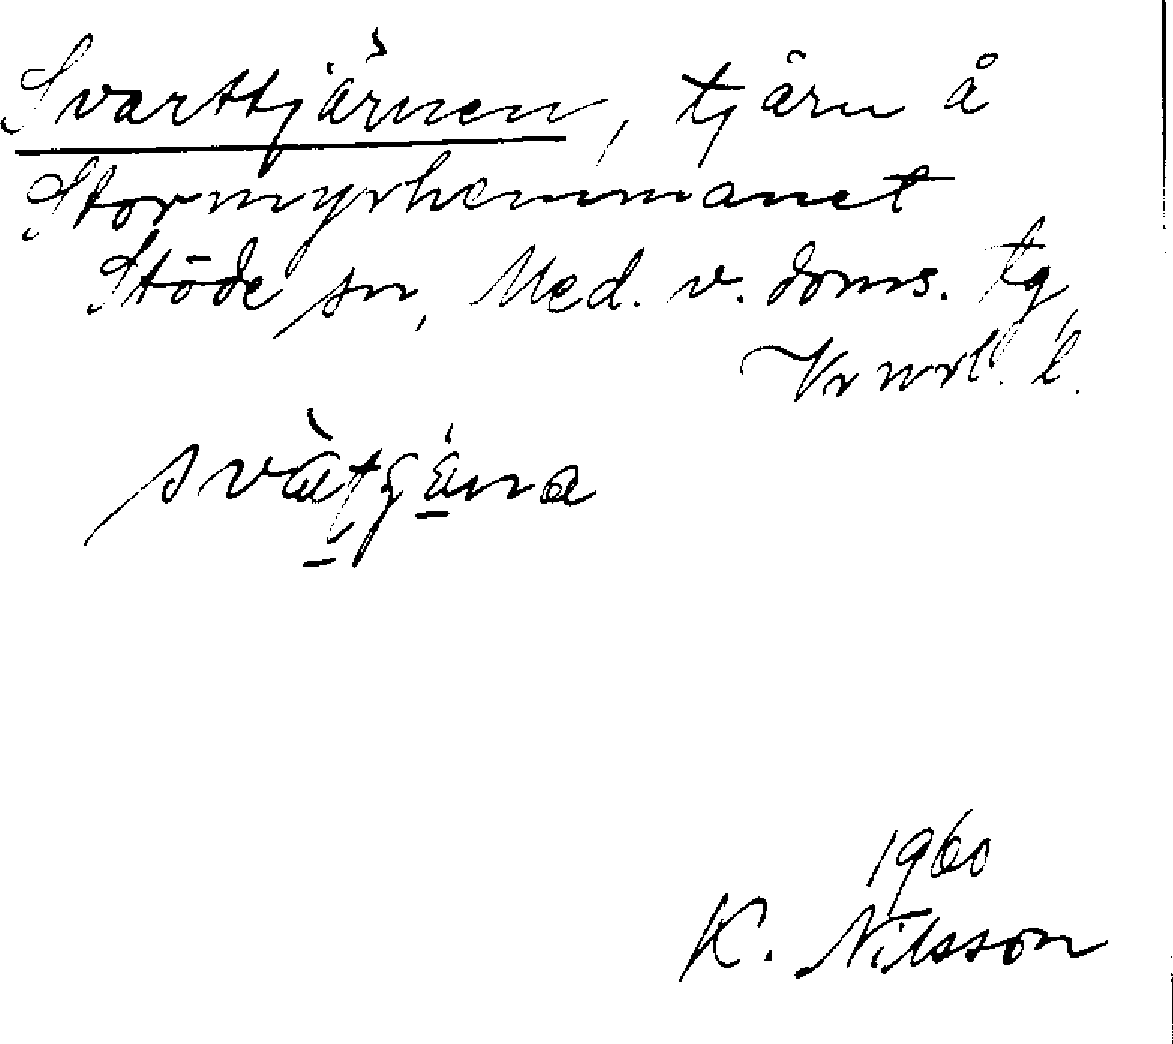 Svarttjärnen, tjärn å
Stormyrhemmanet
Stöde sn, Med. v. doms. tg,
Vrnrl. l.
1960
K. Nilsson